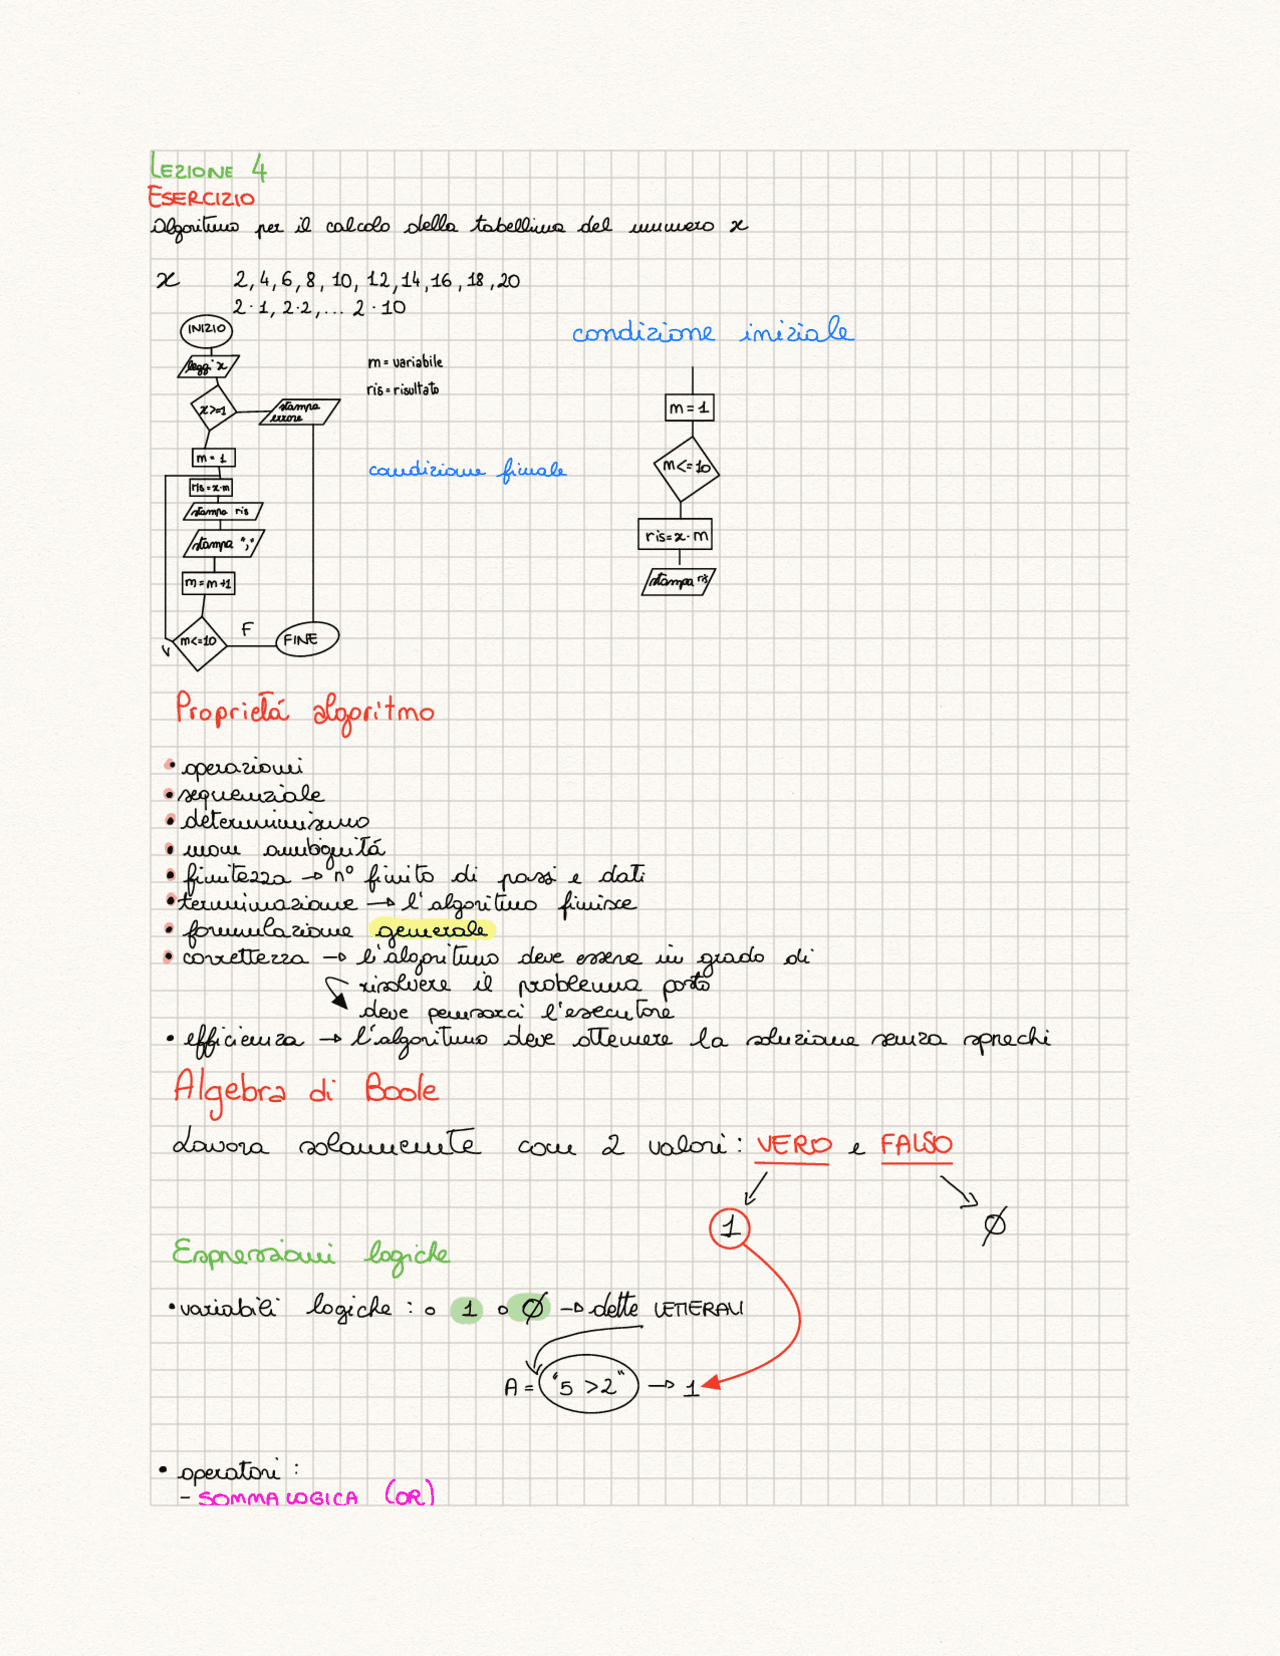 LEZIONE 4
ESERCIZIO
Algoritmo per il calcolo della tabellina del numero x
x 2, 4, 6, 8, 10, 12, 14, 16, 18, 20
2·1, 2·2, ... 2·10
INIZIO
leggi x
x>=1
stampa
errore
m=1
ris=x·m
stampa ris
stampa ";"
m=m+1
m<=10
F
V
FINE
m=variabile
ris=risultato
condizione finale
condizione iniziale
m=1
m<=10
ris=x·m
stampa ris
Proprietá algoritmo
• operazioni
• sequenziale
• determinismo
• non ambiguitá
• finitezza → n° finito di passi e dati
• terminazione → l'algoritmo finisce
• formulazione generale
• correttezza → l'algoritmo deve essere in grado di
risolvere il problema posto
deve pensarci l'esecutore
• efficienza → l'algoritmo deve ottenere la soluzione senza sprechi
Algebra di Boole
Lavora solamente con 2 valori: VERO e FALSO
1 Ø
Espressioni logiche
• variabili logiche: o 1 o Ø → dette LETTERALI
A = "5 >2" → 1
• operatori:
- SOMMA LOGICA (OR)